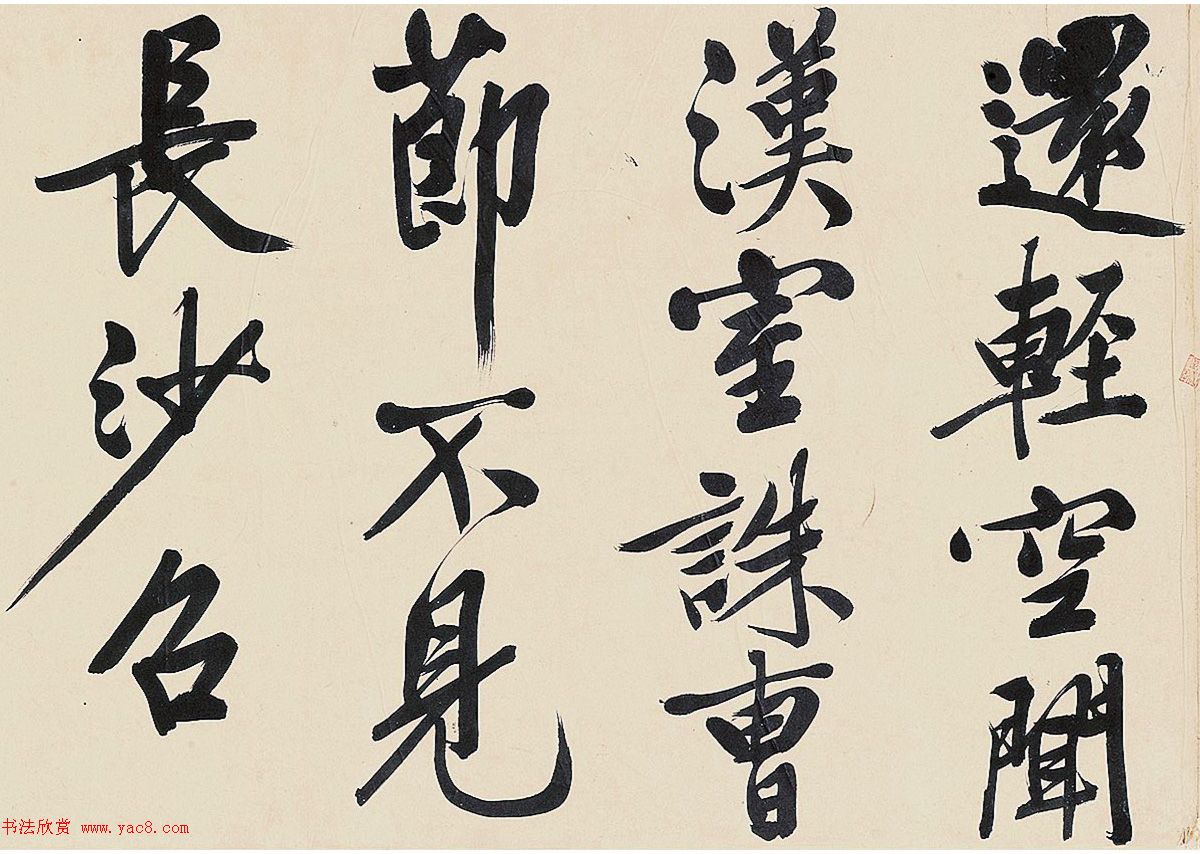 還輕空聞
漢室誅曹
節不見
長沙召
书法欣赏 www.yac8.com